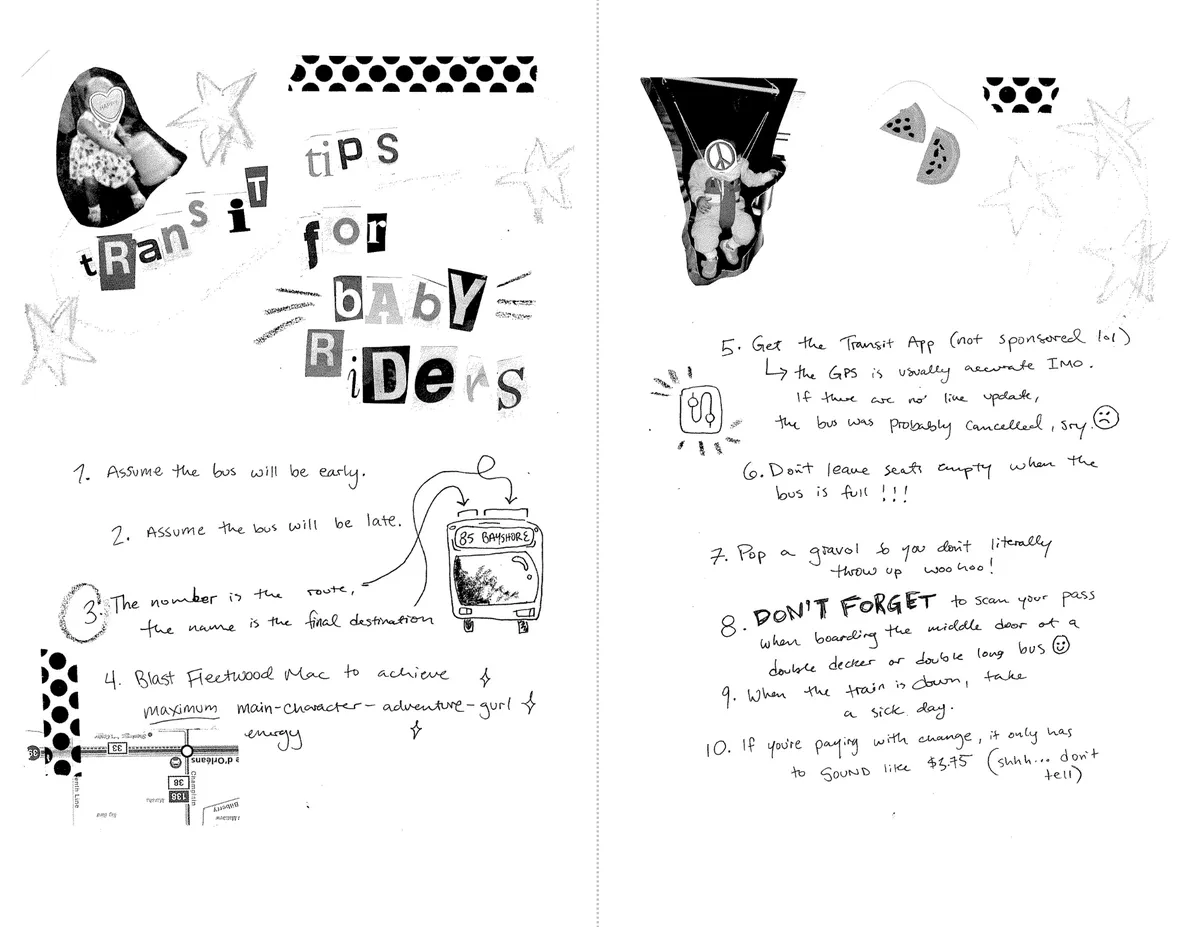 tRansiT
tips
for
bAbY
RiDers
1. Assume the bus will be early.
2. Assume the bus will be late.
85 BAYSHORE
3. The number is the route,
the name is the final destination
4. Blast Fleetwood Mac to achieve
maximum main-character-adventure-gurl
energy
39
33
e d'Orléans
38
138
Champlain
enth Line
Bilberry
5. Get the Transit App (not sponsored lol)
↳ the GPS is usually accurate IMO.
If there are no live update,
the bus was probably cancelled, sry.
6. Don't leave seats empty when the
bus is full !!!
7. Pop a gravol so you don't literally
throw up woohoo!
8. DON'T FORGET to scan your pass
when boarding the middle door of a
double decker or double long bus
9. When the train is down, take
a sick day.
10. If you're paying with change, it only has
to SOUND like $3.75 (shhh... don't
tell)